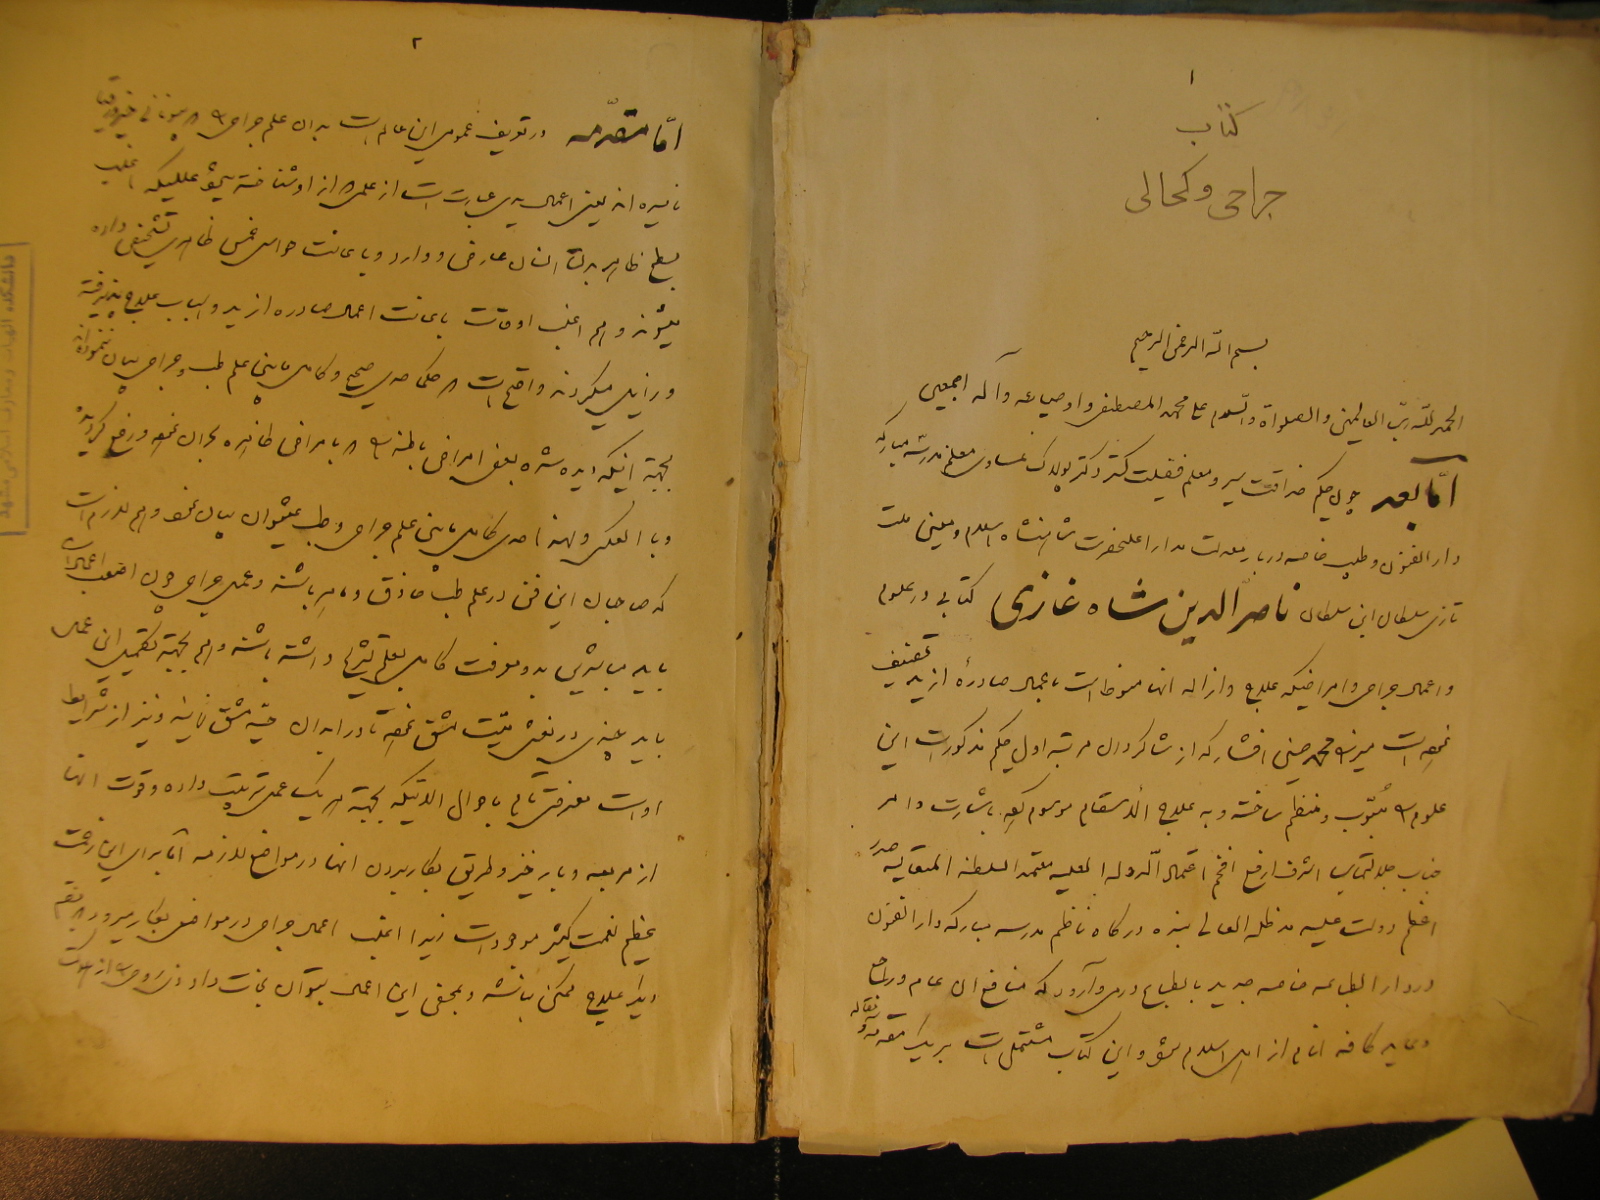 ۱
کتاب
جراحی و کحالی
بسم الله الرحمن الرحیم
الحمد لله ربّ العالمین والصلواة والسلام علی محمد المصطفی و اوصیائه و آله اجمعین
امّا بعد چون حکیم حذاقت سیر و معلم فضیلت گستر دکتر پولاک نمساوی معلم مدرسه مبارکه
دار الفنون و طبیب خاصه دربار معدلت مدار اعلیحضرت شاهنشاه اسلام و معین ملت
تازی سلطان ابن سلطان ناصر الدین شاه غازی کتابی در علوم
و اعمال جراحی و امراضیکه علاج و ازاله انها منوط است باعمال صادرهٔ از ید تصنیف
نموده است میرزا محمد حسین افشار که از شاگردان مرتبه اول حکیم مذکور است این
علوم را مُبوّب و منظم ساخته و به علاج الاسقام موسوم نموده باشارت و امر
جناب جلالتمآب اشرف ارفع افخم اعتماد الدوله العلیه معتمد السلطنه صدر
اعظم دولت علیه مد ظله العالی بنده درگاه ناظم مدرسه مبارکه دار الفنون
در دار الطباعه خاصه جدید بانطباع درمی‌آورد که منافع ان عام و
و عاید کافه انام از اهل اسلام شود و این کتاب مشتمل است بر یک مقدمه و مقاله
۲
امّا مقدّمه در تعریف عمومی این عالم است بدان علم جراحی را بیونانی
نامیده اند یعنی اعمال یدی عبارت است از علمی که از او شناخته میشود عللیکه اغلب
بسطح ظاهر بدن انسان عارض و وارد و باعانت حواس خمس ظاهری تشخیص داده
میشوند و هم اغلب اوقات باعانت اعمال صادره از ید و اسباب علاج پذیرفته
و زایل میگردند واضح است که حکما حدی صحیح و کامل مابین علم طب و جراحی بیان ننموده‌اند
بجهة اینکه دیده شده بعض امراض باطنه را که بامراض ظاهره بحران نموده و رفع گردیده
و بالعکس ولهذا حدی کامل مابین علم جراحی و طب نمیتوان بیان نمود و هم لازم است
که صاحبان این فن در علم طب حاذق و ماهر باشند و عمل جراحی چون اصعب اعمال است
باید مباشرین بدو معرفت کامل بعلم تشریح داشته باشند و هم بجهة تکمیل این عمل
باید چندی در نعش میّت مشق نموده تا در ابدان حیّه مشق نمایند و نیز از شرایط
او است معرفت تام باحوال الاتیکه بجهة هر یک عمل ترتیب داده و قوت انها
از مربعه و باریز و طریق بکار بردن انها در مواضع لازمه اما برای این زحمت
عظیم نعمت کثیر موجود است زیرا اغلب اعمال جراحی در مواضعی بکار میرود
دیگر علاج ممکن نباشد و بمحض این اعمال بتوان نجات داد ذی روحی را از هلاکت
دانشکده الهیات و معارف اسلامی مشهد